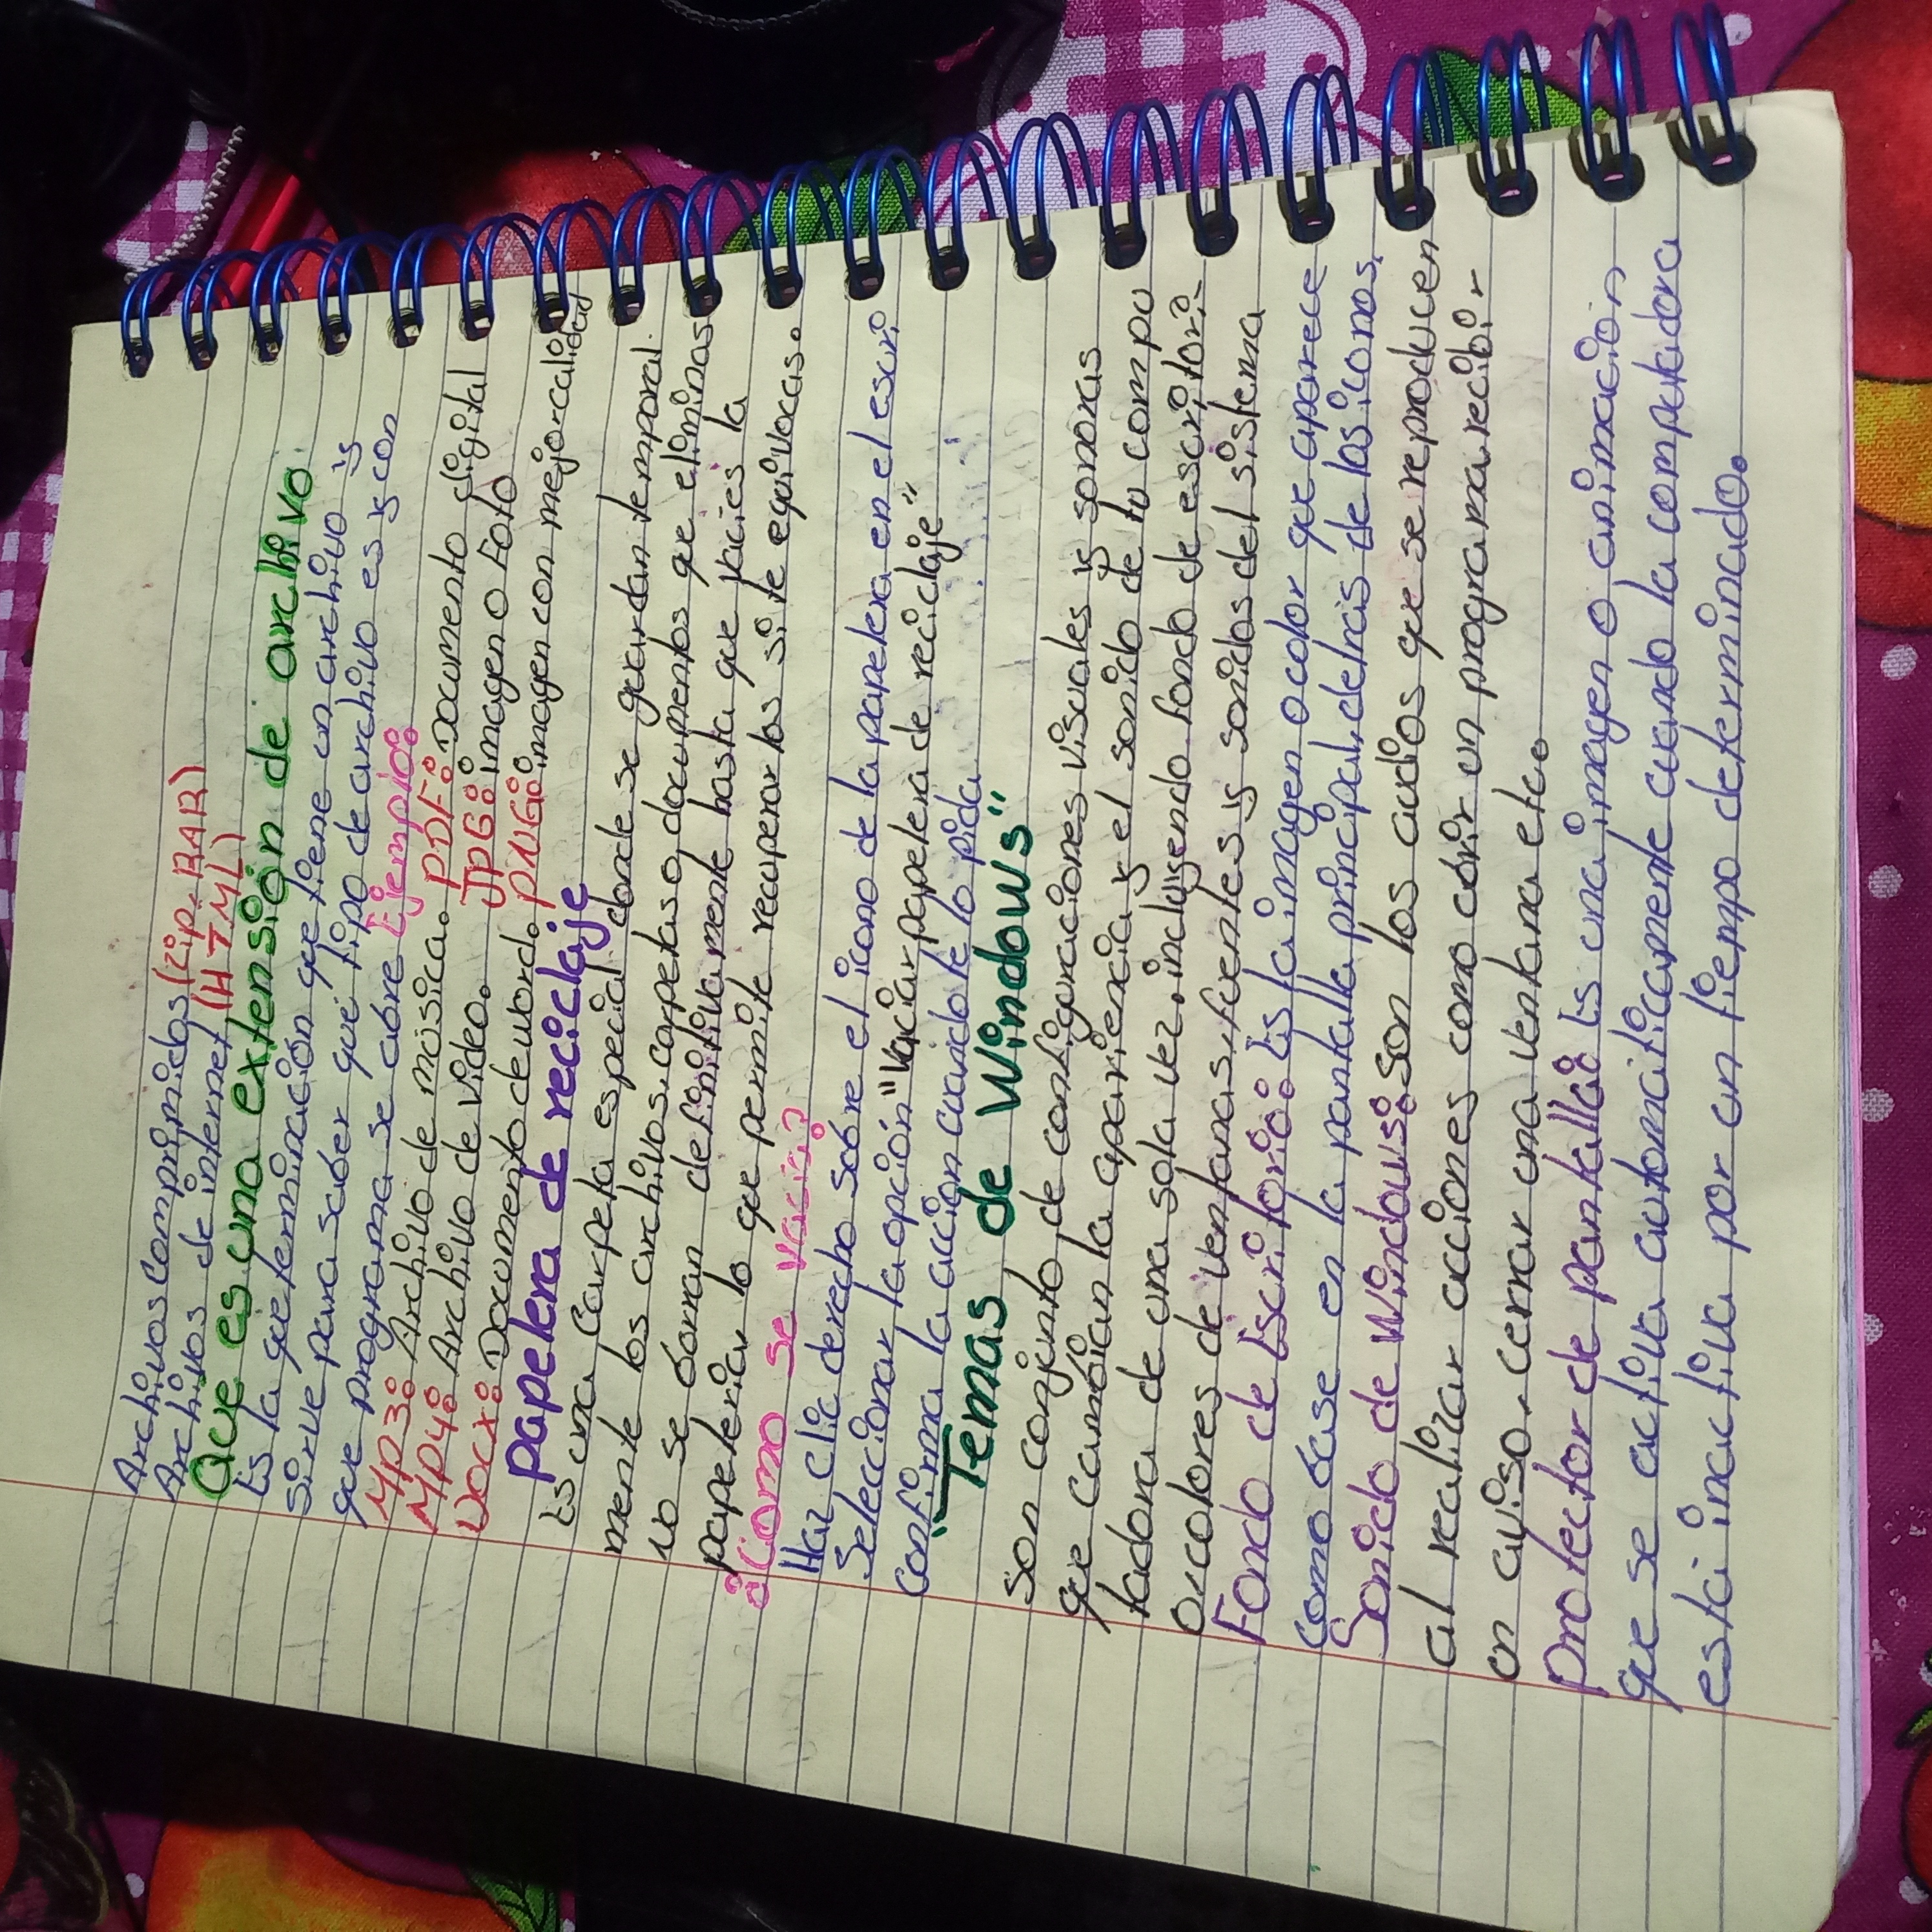 Archivos comprimidos (zip, RAR)
Archivos de internet (HTML)
Que es una extensión de archivo.
Es la que terminación que tiene un archivo y
sirve para saber que tipo de archivo es y con
que programa se cabre Ejemplo:
MP3: Archivo de música. PDF: Documento digital
MP4: Archivo de video. JPG: imagen o Foto
Docx: Documento de word. PNG: imagen con mejor calidad
papelera de reciclaje
Es una Carpeta especial donde se guardan temporal.
mente los archivos, carpetas o documentos que eliminas
no se borran definitivamente hasta que vacies la
papeleria, lo que permite recuperar los si te equivocas.
¿Como se vacia?
Haz clic derecho sobre el icono de la papelera en el escri
Seleccionar la opción "Vaciar papelera de reciclaje"
Confirma la acción cuando te lo pida
"Temas de Windows"
Son conjunto de configuraciones visuales y sonoras
que cambian la apariencia y el sonido de tu compu
tadora de una sola vez, incluyendo fondo de escritori-
o, colores de ventanas, fuentes y sonidos del sistema
Fondo de Escritorio: Es la imagen o color que aparece
como base en la pantalla principal, detrás de los iconos,
Sonido de Windows: Son los audios que se reproducen
al realizar acciones como cabrir un programa, recibi-
un aviso, cerrar una ventana etc.
protector de pantalla: Es una imagen o animacion
que se activa automáticamente cuando la computadora
está inactiva por un tiempo determinado.